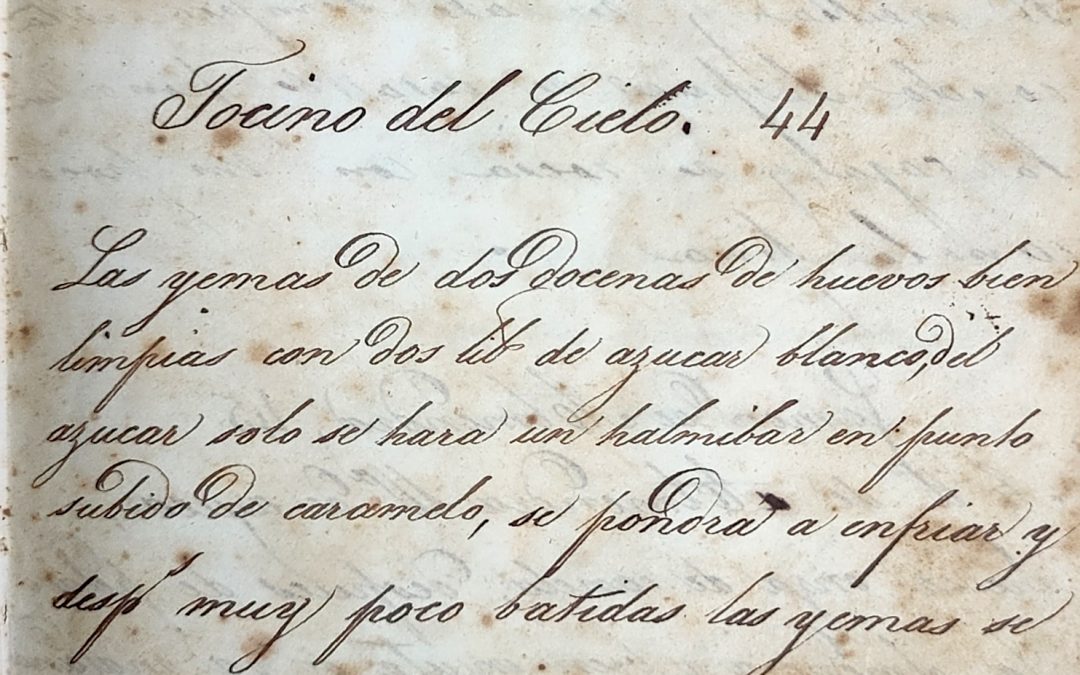 Tocino del Cielo. 44
Las yemas de dos docenas de huevos bien
limpias con dos lib de azucar blanco, del
azucar solo se hara un halmibar en punto
subido de caramelo, se pondra a enfriar y
desp.s muy poco batidas las yemas se